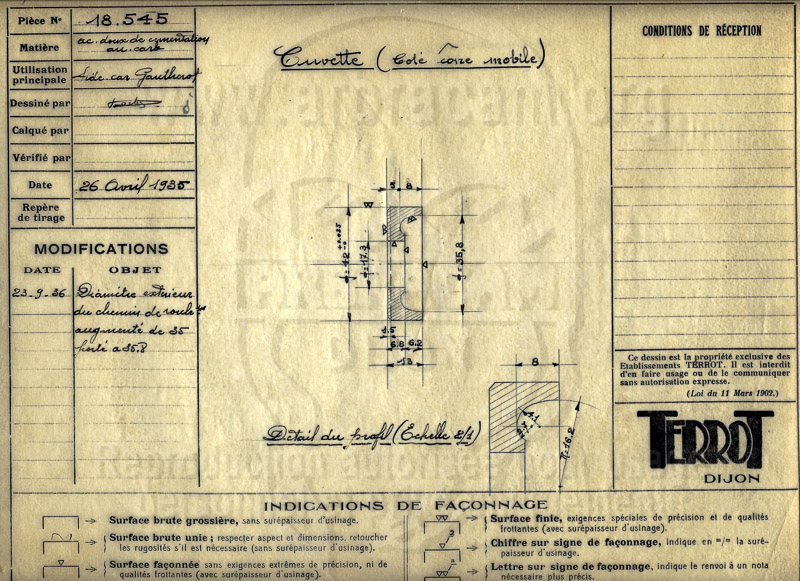 Pièce Nº 18.545
Matière ac. doux de cémentation
au. carb
Utilisation principale Side-car Gauthier
Dessiné par
Calqué par
Vérifié par
Date 26 Avril 1935
Repère de tirage
MODIFICATIONS
DATE OBJET
23-9-36 Diamètre extérieur
du chemin de roule
augmenté de 35
porté a 35.8
Cuvette (Coté cône mobile)
5 8
ϕ=42
ϕ=17.3
ϕ=35,8
1.5
6.8 6.2
13
Détail du profil (Echelle 2/1)
8
R=16.2
CONDITIONS DE RÉCEPTION
Ce dessin est la propriété exclusive des
Etablissements TERROT. Il est interdit
d'en faire usage ou de le communiquer
sans autorisation expresse.
(Loi du 11 Mars 1902.)
TERROT
DIJON
INDICATIONS DE FAÇONNAGE
Surface brute grossière, sans surépaisseur d'usinage.
Surface brute unie; respecter aspect et dimensions, retoucher
les rugosités s'il est nécessaire (sans surépaisseur d'usinage).
Surface façonnée sans exigences extrêmes de précision, ni de
qualités frottantes (avec surépaisseur d'usinage).
Surface finie, exigences spéciales de précision et de qualités
frottantes (avec surépaisseur d'usinage).
Chiffre sur signe de façonnage, indique en m/m la suré-
paisseur d'usinage.
Lettre sur signe de façonnage, indique le renvoi à un nota
nécessaire plus précis.